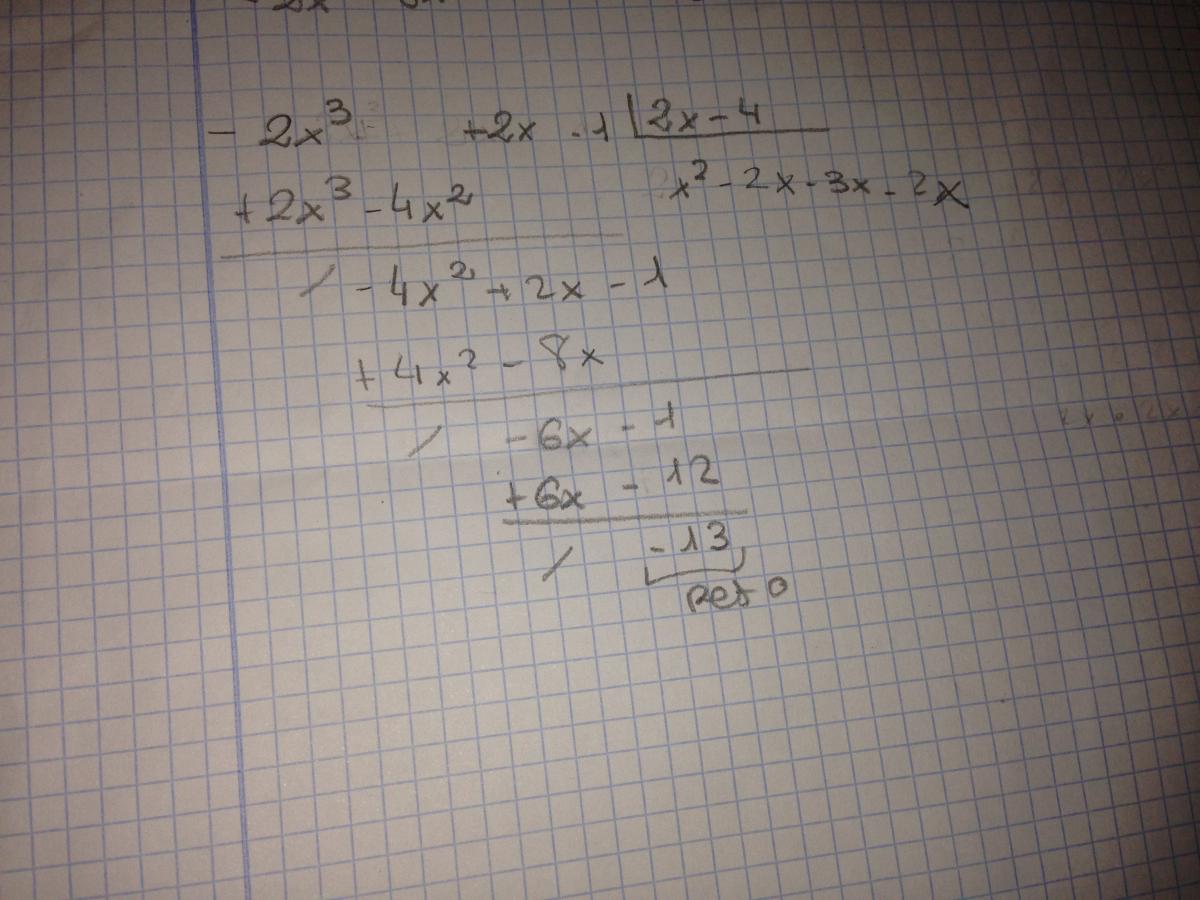 - 2x³ +2x -1 | 2x - 4
+2x³ - 4x² x² - 2x - 3x - 2x
/ - 4x² + 2x - 1
+ 4x² - 8x
/ - 6x - 1
+ 6x - 12
/ - 13